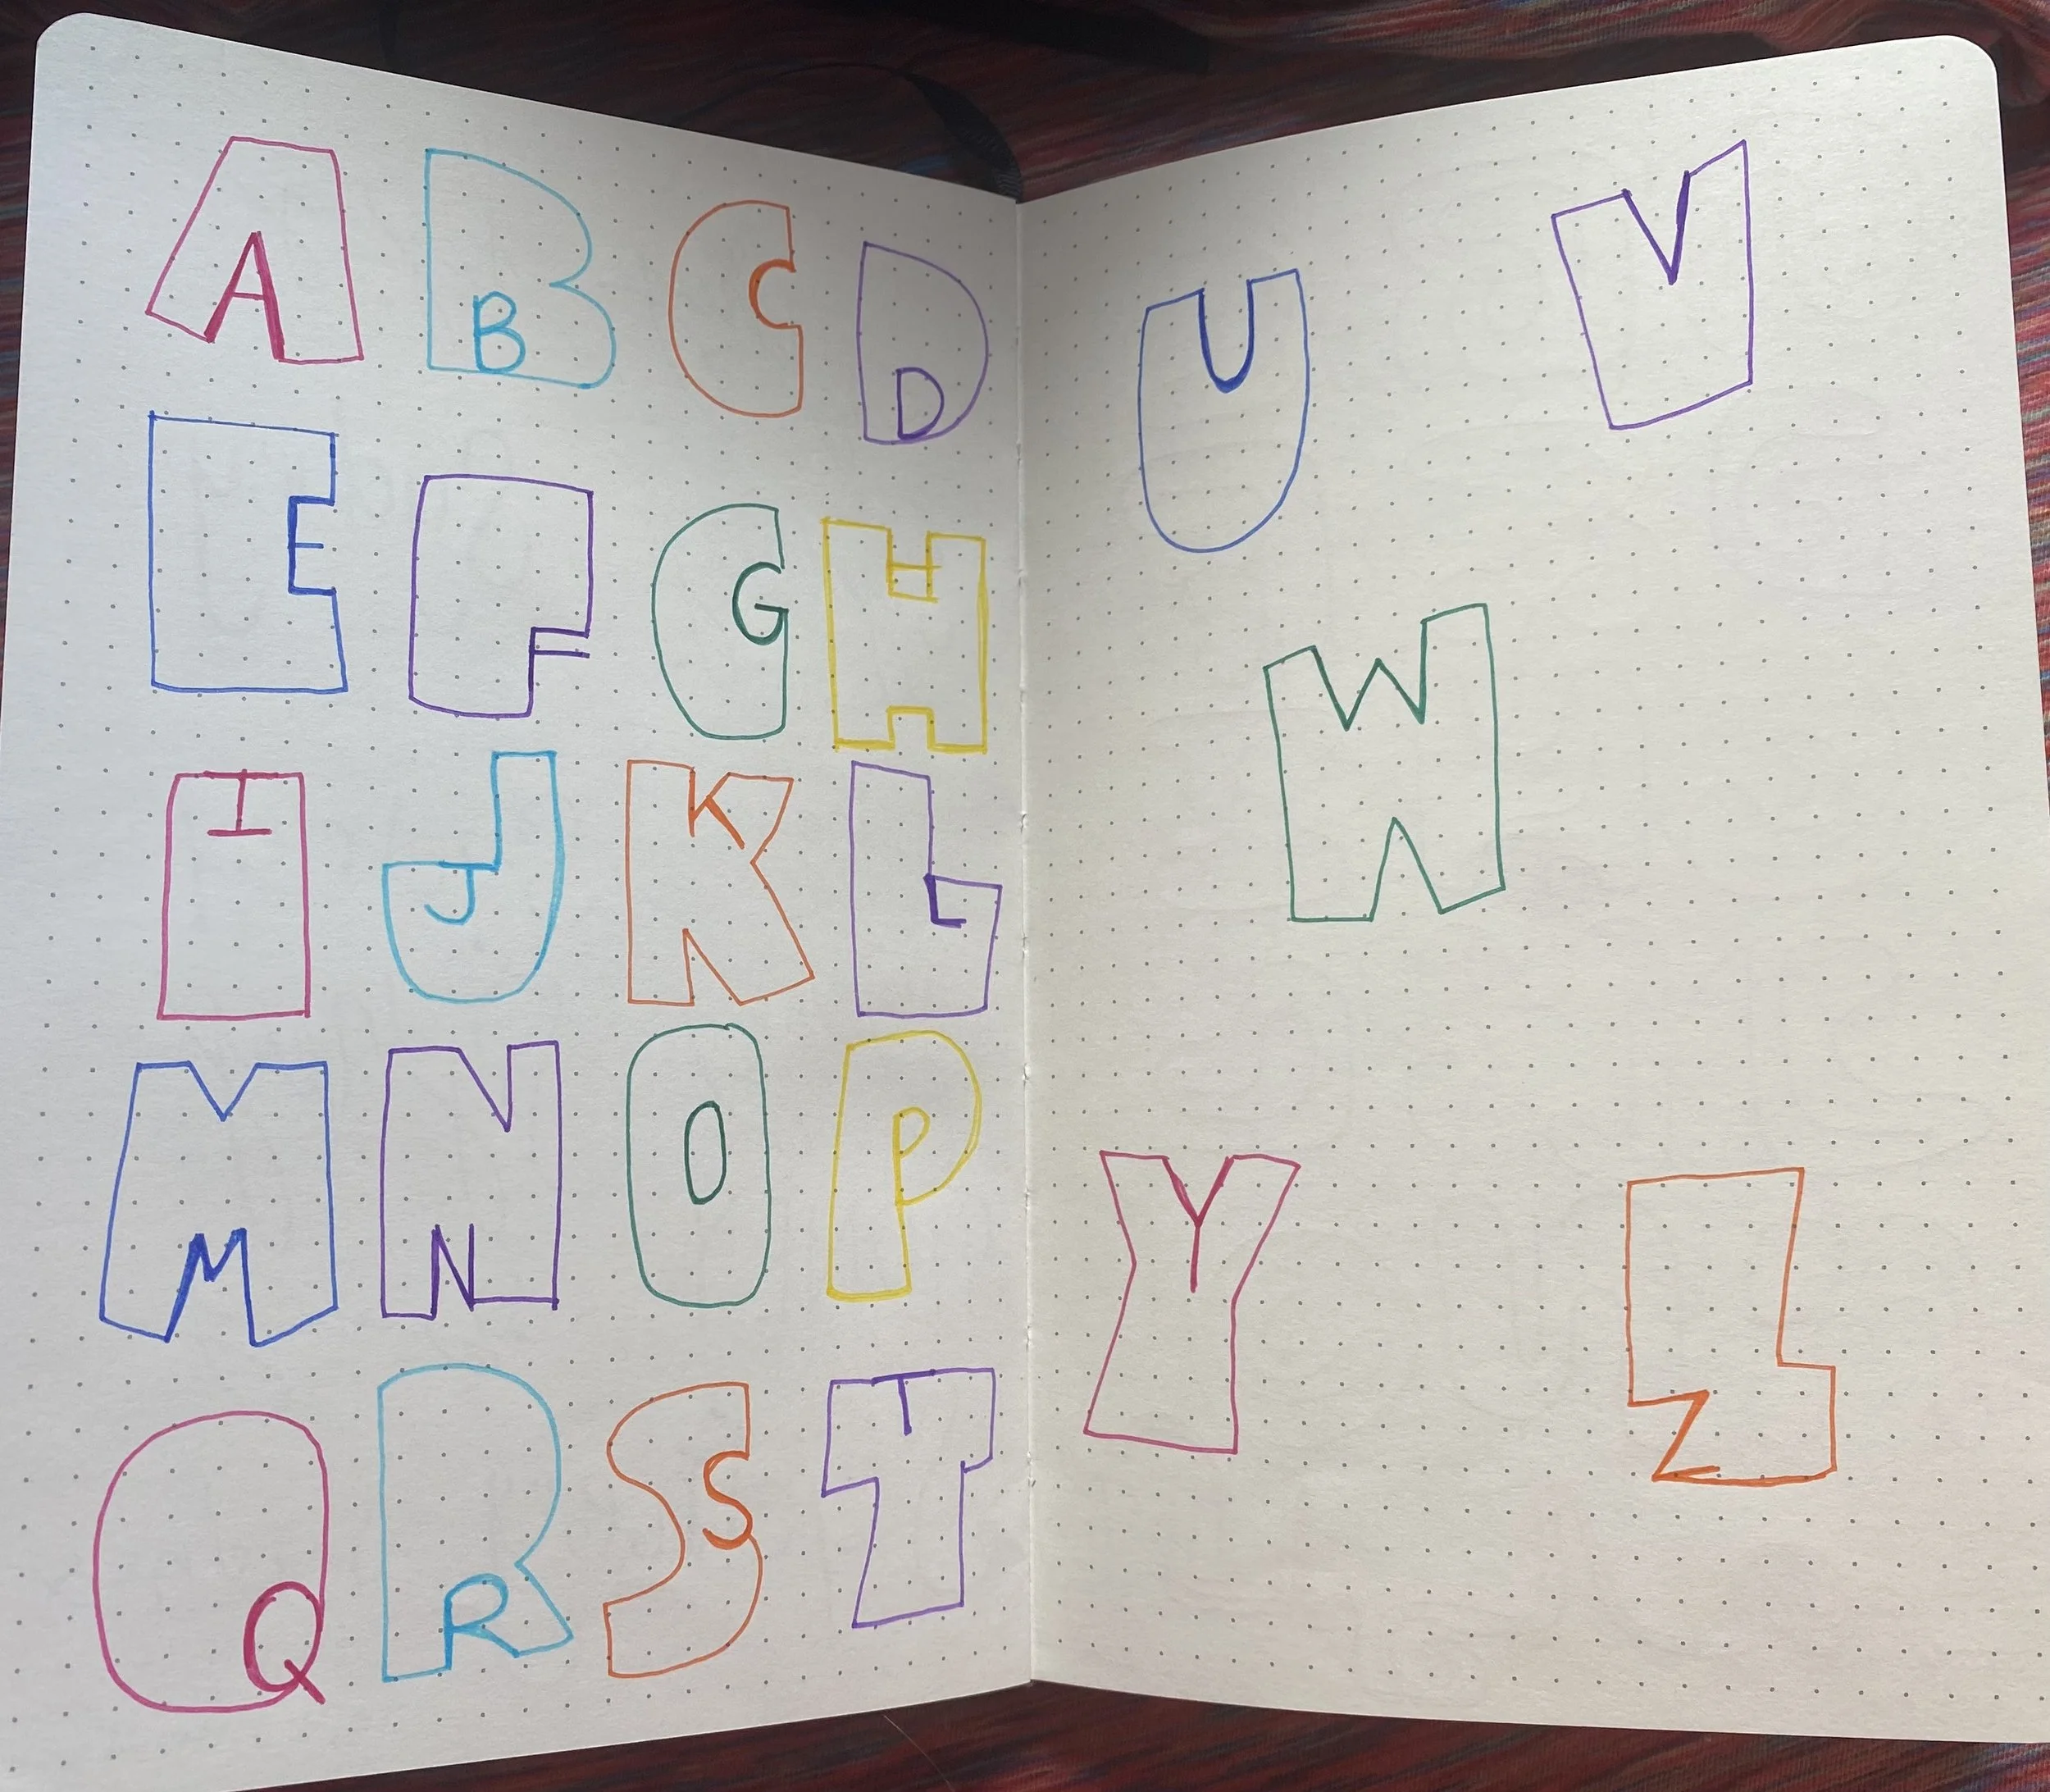 A B C D
E F G H
I J K L
M N O P
Q R S T
U V
W
Y Z